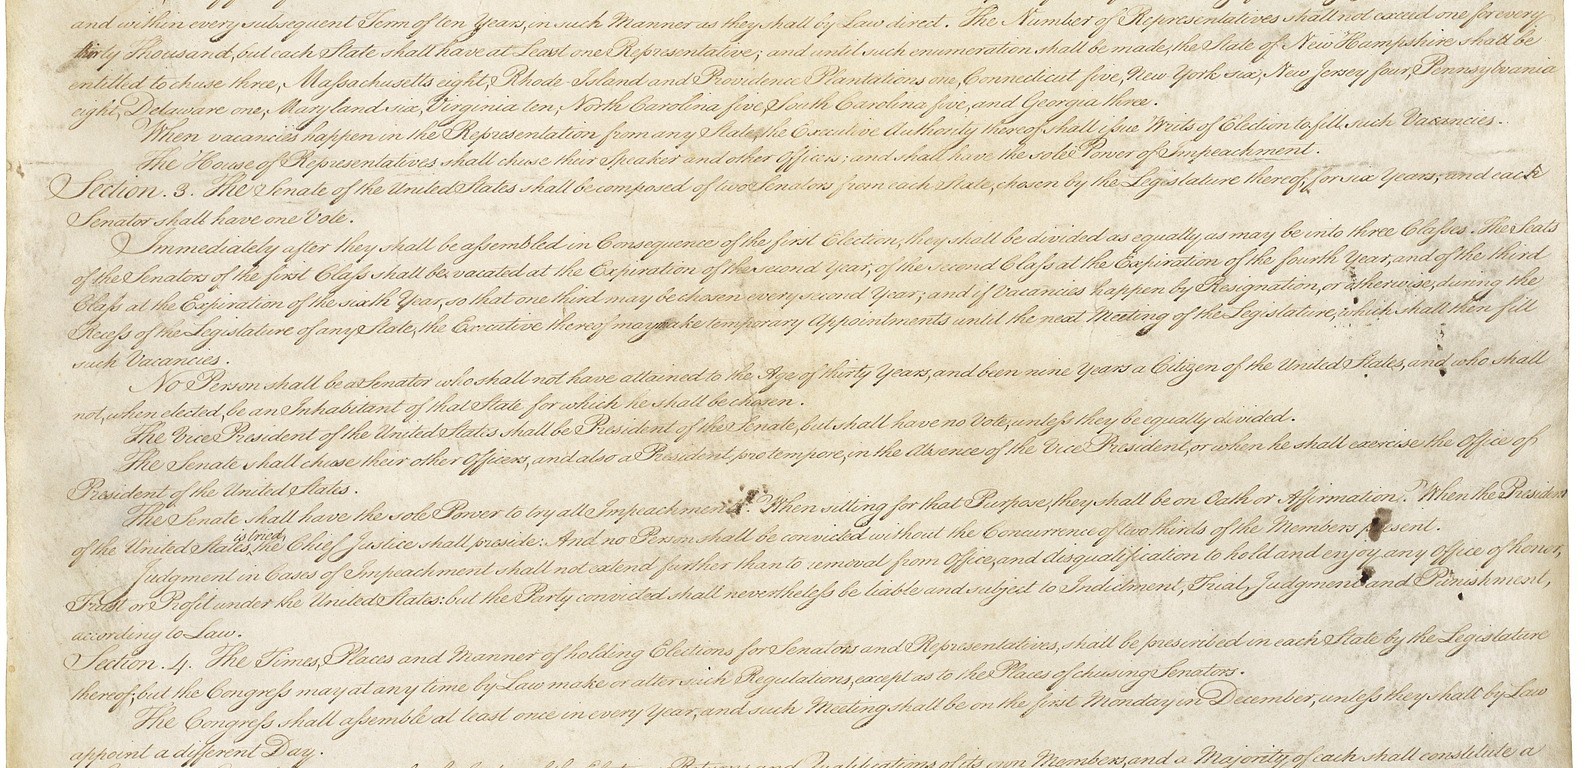 and within every subsequent Term of ten Years, in such Manner as they shall by Law direct. The Number of Representatives shall not exceed one for every
thirty Thousand, but each State shall have at Least one Representative; and until such enumeration shall be made, the State of New Hampshire shall be
entitled to chuse three, Massachusetts eight, Rhode-Island and Providence Plantations one, Connecticut five, New York six, New Jersey four, Pennsylvania
eight, Delaware one, Maryland six, Virginia ten, North Carolina five, South Carolina five, and Georgia three.
When vacancies happen in the Representation from any State, the Executive Authority thereof shall issue Writs of Election to fill such Vacancies.
The House of Representatives shall chuse their Speaker and other Officers; and shall have the sole Power of Impeachment.
Section. 3. The Senate of the United States shall be composed of two Senators from each State, chosen by the Legislature thereof, for six Years; and each
Senator shall have one Vote.
Immediately after they shall be assembled in Consequence of the first Election, they shall be divided as equally as may be into three Classes. The Seats
of the Senators of the first Class shall be vacated at the Expiration of the second Year, of the second Class at the Expiration of the fourth Year, and of the third
Class at the Expiration of the sixth Year, so that one third may be chosen every second Year; and if Vacancies happen by Resignation, or otherwise, during the
Recess of the Legislature of any State, the Executive thereof may make temporary Appointments until the next Meeting of the Legislature, which shall then fill
such Vacancies.
No Person shall be a Senator who shall not have attained to the Age of thirty Years, and been nine Years a Citizen of the United States, and who shall
not, when elected, be an Inhabitant of that State for which he shall be chosen.
The Vice President of the United States shall be President of the Senate, but shall have no Vote, unless they be equally divided.
The Senate shall chuse their other Officers, and also a President pro tempore, in the Absence of the Vice President, or when he shall exercise the Office of
President of the United States.
The Senate shall have the sole Power to try all Impeachments. When sitting for that Purpose, they shall be on Oath or Affirmation. When the President
of the United States is tried, the Chief Justice shall preside: And no Person shall be convicted without the Concurrence of two thirds of the Members present.
Judgment in Cases of Impeachment shall not extend further than to removal from Office, and disqualification to hold and enjoy any Office of honor,
Trust or Profit under the United States: but the Party convicted shall nevertheless be liable and subject to Indictment, Trial, Judgment and Punishment,
according to Law.
Section. 4. The Times, Places and Manner of holding Elections for Senators and Representatives, shall be prescribed in each State by the Legislature
thereof; but the Congress may at any time by Law make or alter such Regulations, except as to the Places of chusing Senators.
The Congress shall assemble at least once in every Year, and such Meeting shall be on the first Monday in December, unless they shall by Law
appoint a different Day.
Qualifications of its own Members, and a Majority of each shall constitute a